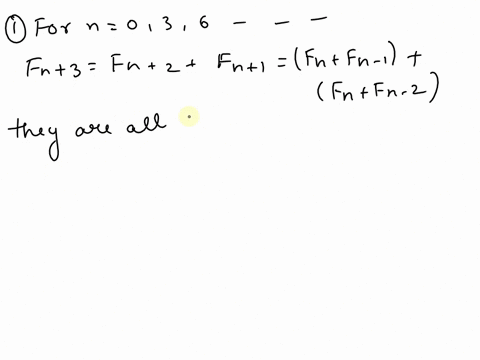 ① For n = 0, 3, 6 - - -
Fn+3 = Fn+2 + Fn+1 = (Fn + Fn-1) +
(Fn + Fn-2)
they are all